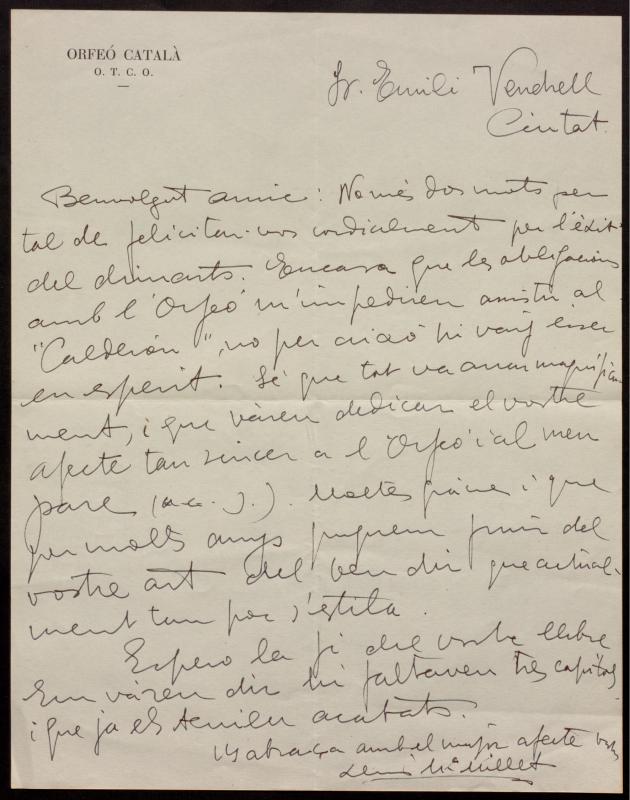 ORFEÓ CATALÀ
O. T. C. O.
Sr. Emili Vendrell
Ciutat.
Benvolgut amic: Només dos mots per
tal de felicitar-vos cordialment per l'èxit
del dimarts. Encara que les obligacions
amb l'Orfeó m'impediren assistir al
"Calderón", no per aixó hi vaig esser
en esperit. Sé que tot va anar magnífica-
ment, i que vàren dedicar el vostre
afecte tan sincer a l'Orfeó i al meu
pare (a.c.s.). Moltes gràcies i que
per molts anys puguem fruir del
vostre art del ben dir que actual-
ment tan poc s'estila.
Espero la fi del vostre llibre
Em vàren dir hi faltaven tres capítols
i que ja els teníeu acabats.
Us abraça amb el major afecte
Lluís Mª Millet